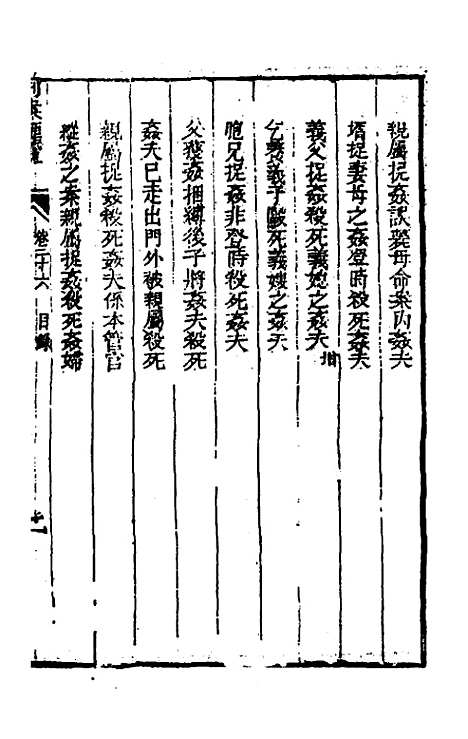 親屬捉姦誤斃毋命案內姦夫
壻捉妻母之姦登時殺死姦夫
義父捉姦殺死義媳之姦夫
乞養義子毆死義嫂之姦夫
胞兄捉姦非登時殺死姦夫
父獲姦捆縛後子將姦夫殺死
姦夫已走出門外被親屬殺死
親屬捉姦殺死姦夫係本管官
縱姦之案親屬捉姦殺死姦婦
卷二十六 目錄